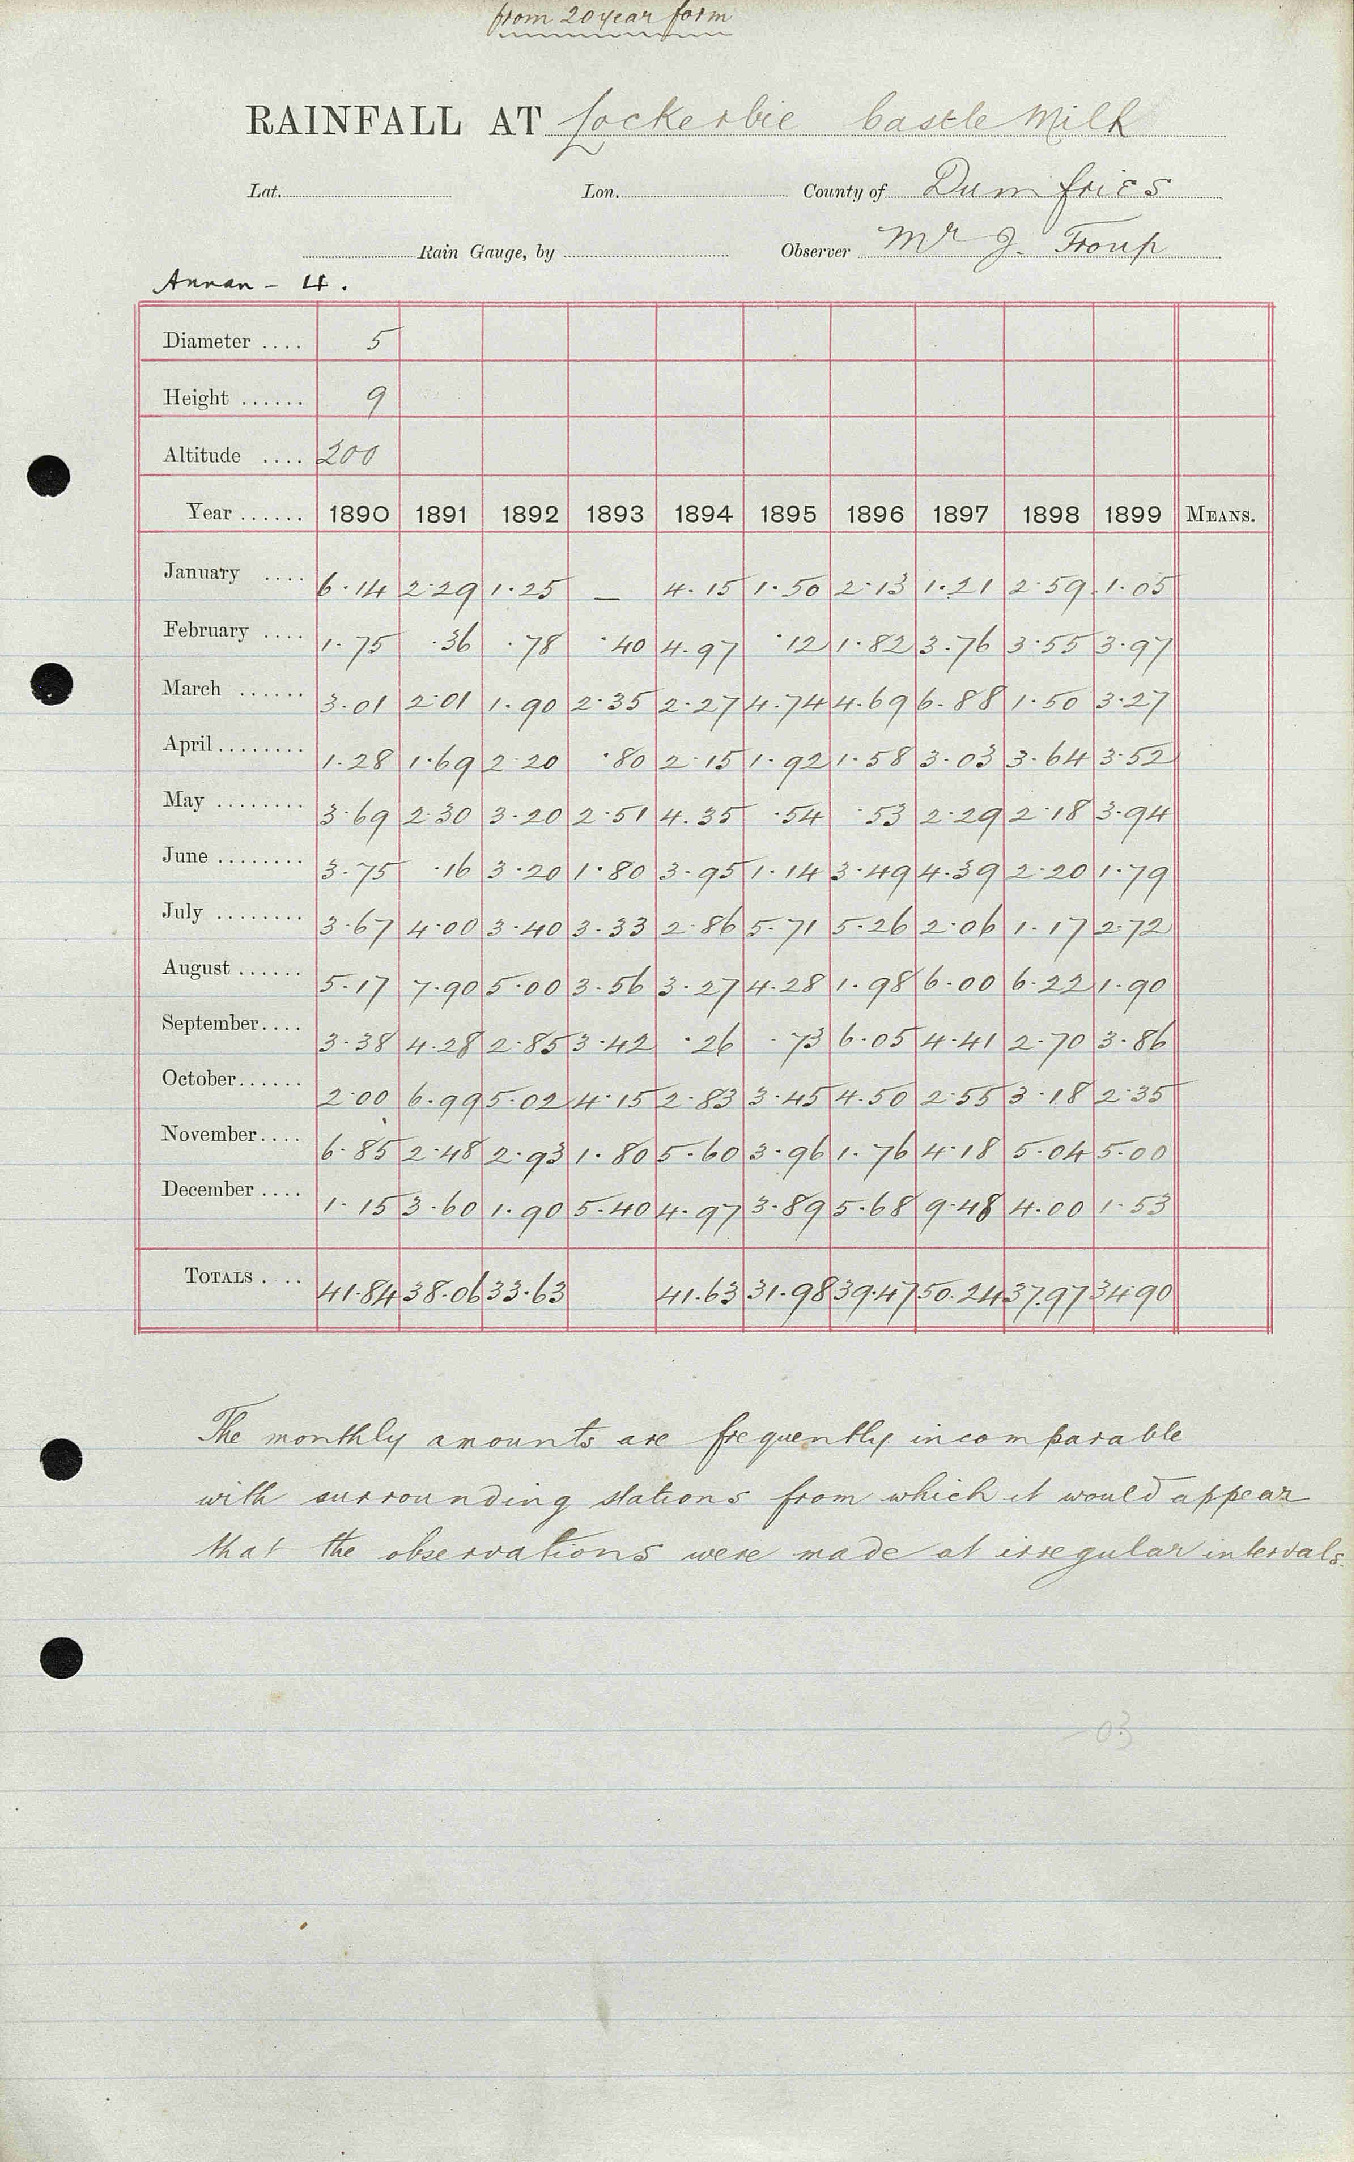 from 20 year form
RAINFALL AT Lockerbie Castle Milk
Lat. Lon. County of Dumfries
Rain Gauge, by Observer Mr J. Troup
Annan - 4.
Diameter .... 5
Height ...... 9
Altitude .... 200
Year ...... 1890 1891 1892 1893 1894 1895 1896 1897 1898 1899 MEANS.
January .... 6.14 2.29 1.25 — 4.15 1.50 2.13 1.21 2.59 1.05
February .... 1.75 .36 .78 .40 4.97 .12 1.82 3.76 3.55 3.97
March ...... 3.01 2.01 1.90 2.35 2.27 4.74 4.69 6.88 1.50 3.27
April ........ 1.28 1.69 2.20 .80 2.15 1.92 1.58 3.03 3.64 3.52
May ........ 3.69 2.30 3.20 2.51 4.35 .54 .53 2.29 2.18 3.94
June ........ 3.75 .16 3.20 1.80 3.95 1.14 3.49 4.39 2.20 1.79
July ........ 3.67 4.00 3.40 3.33 2.86 5.71 5.26 2.06 1.17 2.72
August ...... 5.17 7.90 5.00 3.56 3.27 4.28 1.98 6.00 6.22 1.90
September .... 3.38 4.28 2.85 3.42 .26 .73 6.05 4.41 2.70 3.86
October ...... 2.00 6.99 5.02 4.15 2.83 3.45 4.50 2.55 3.18 2.35
November .... 6.85 2.48 2.93 1.80 5.60 3.96 1.76 4.18 5.04 5.00
December .... 1.15 3.60 1.90 5.40 4.97 3.89 5.68 9.48 4.00 1.53
TOTALS .... 41.84 38.06 33.63 41.63 31.98 39.47 50.24 37.97 34.90
The monthly amounts are frequently incomparable
with surrounding stations from which it would appear
that the observations were made at irregular intervals.
03